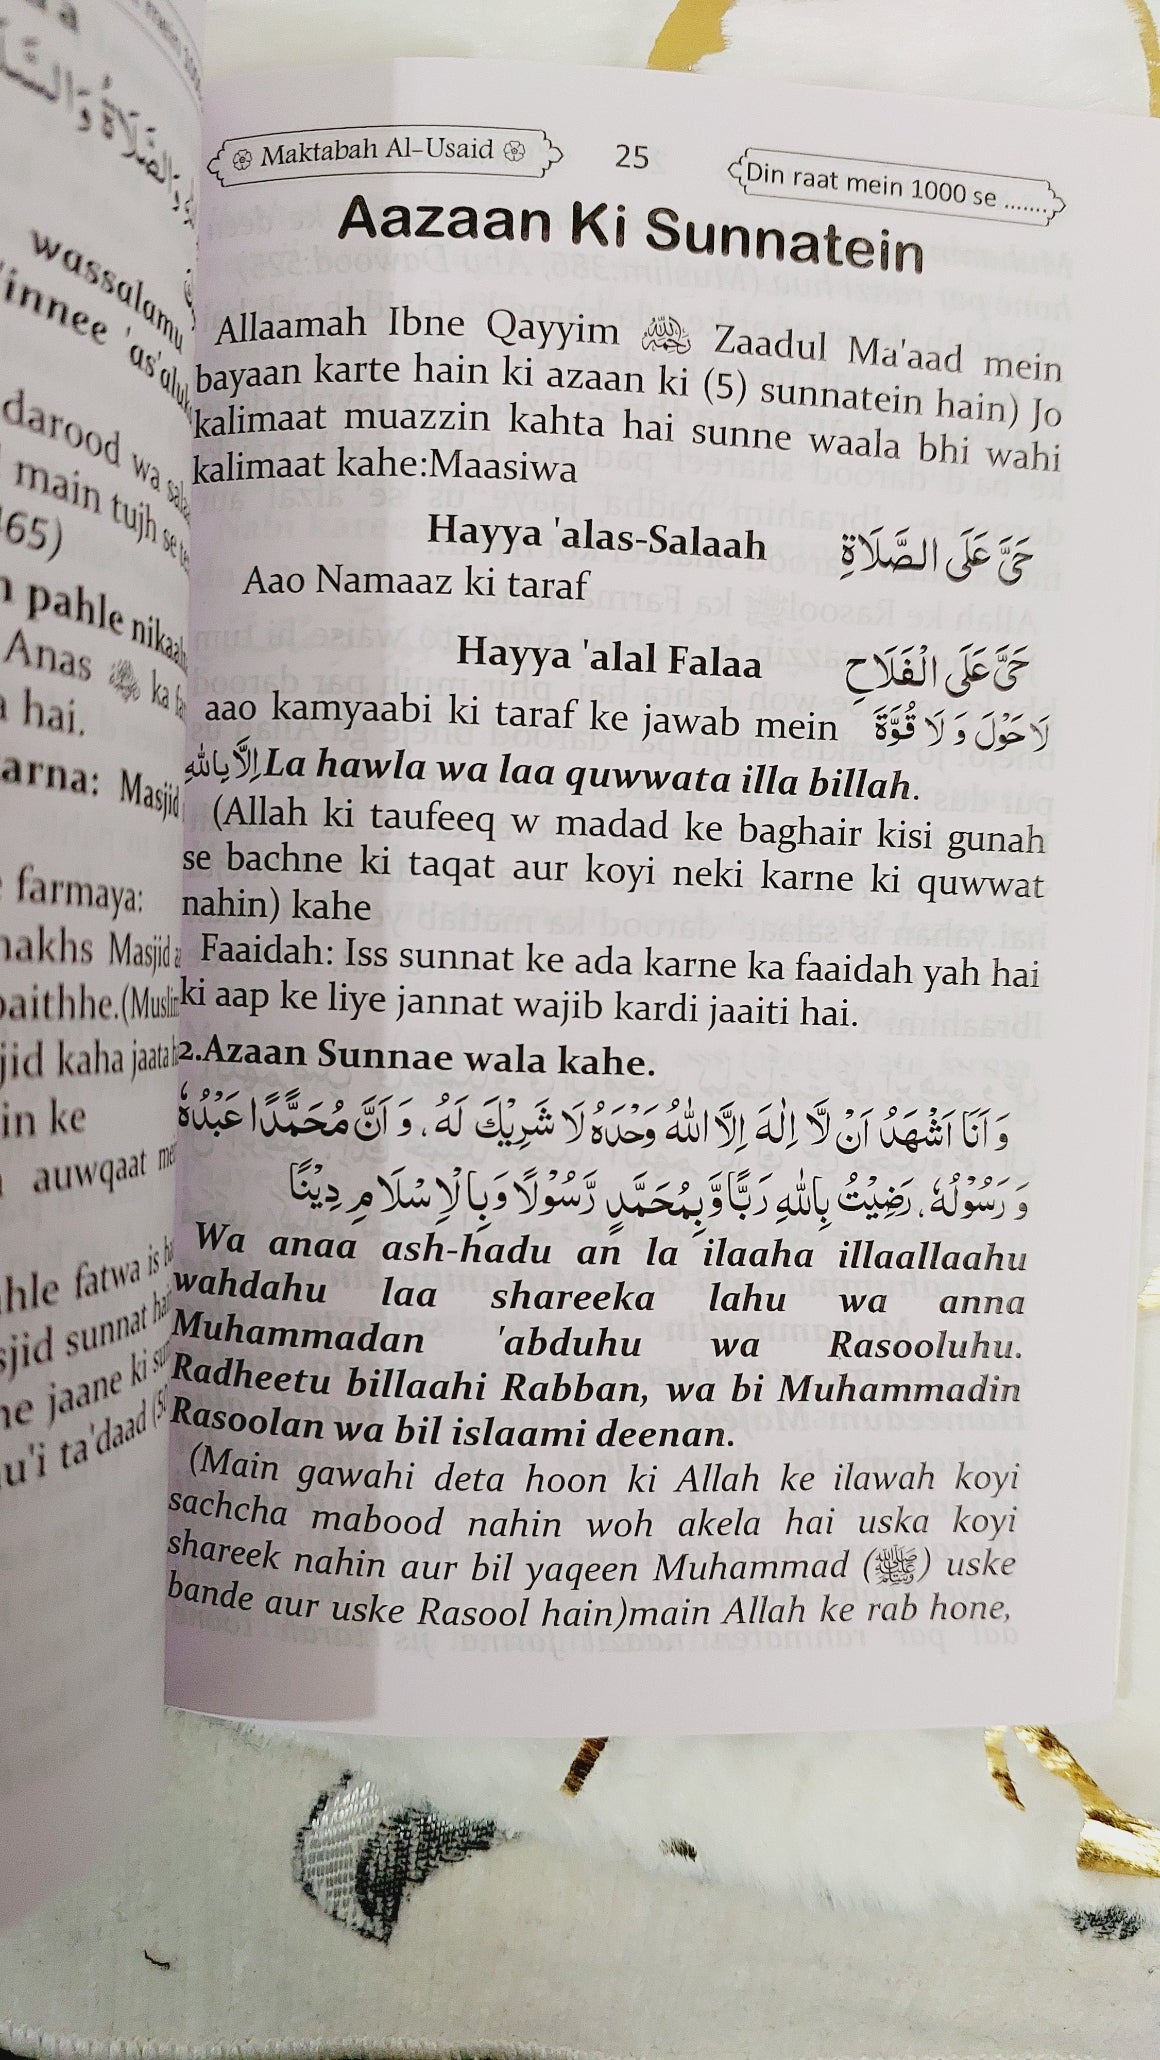 wassalamu
'innee 'as'aluk
darood wa sala
main tujh se te
65)
pahle nikaah
Anas ﷺ ka fa
hai.
arna: Masjid
farmaya:
hakhs Masjid a
baithhe.(Muslim
jid kaha jaata h
in ke
auwqaat me
hle fatwa is ha
sjid sunnat hai
ne jaane ki sun
u'i ta'daad (50
Maktabah Al-Usaid 25 Din raat mein 1000 se .......
Aazaan Ki Sunnatein
Allaamah Ibne Qayyim Zaadul Ma'aad mein
bayaan karte hain ki azaan ki (5) sunnatein hain) Jo
kalimaat muazzin kahta hai sunne waala bhi wahi
kalimaat kahe:Maasiwa
Hayya 'alas-Salaah حَیَّ عَلَی الصَّلَاةِ
Aao Namaaz ki taraf
Hayya 'alal Falaa حَیَّ عَلَی الْفَلَاحِ
aao kamyaabi ki taraf ke jawab mein لَا حَوْلَ وَ لَا قُوَّةَ
اِلَّا بِاللهِ La hawla wa laa quwwata illa billah.
(Allah ki taufeeq w madad ke baghair kisi gunah
se bachne ki taqat aur koyi neki karne ki quwwat
nahin) kahe
Faaidah: Iss sunnat ke ada karne ka faaidah yah hai
ki aap ke liye jannat wajib kardi jaaiti hai.
2.Azaan Sunnae wala kahe.
وَ اَنَا اَشْهَدُ اَنْ لَّا اِلٰهَ اِلَّا اللهُ وَحْدَهٗ لَا شَرِيْكَ لَهٗ، وَ اَنَّ مُحَمَّدًا عَبْدُهٗ
وَ رَسُوْلُهٗ، رَضِيْتُ بِاللهِ رَبًّا وَّ بِمُحَمَّدٍ رَّسُوْلًا وَ بِالْاِسْلَامِ دِيْنًا
Wa anaa ash-hadu an la ilaaha illaallaahu
wahdahu laa shareeka lahu wa anna
Muhammadan 'abduhu wa Rasooluhu.
Radheetu billaahi Rabban, wa bi Muhammadin
Rasoolan wa bil islaami deenan.
(Main gawahi deta hoon ki Allah ke ilawah koyi
sachcha mabood nahin woh akela hai uska koyi
shareek nahin aur bil yaqeen Muhammad (ﷺ) uske
bande aur uske Rasool hain)main Allah ke rab hone,